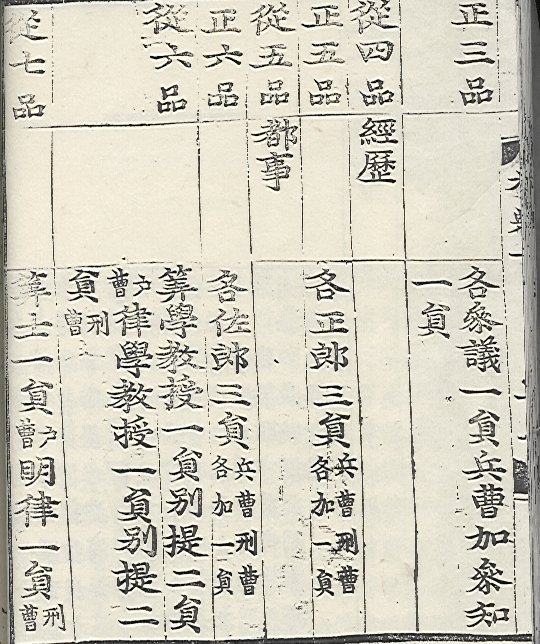 正三品
各參議一員兵曹加參知
一員
從四品
經歷
正五品
各正郎三員兵曹刑曹各加一員
從五品
都事
正六品
各佐郎三員兵曹刑曹各加一員
從六品
筭學教授一員別提二員
戶曹律學教授一員別提二
員刑曹
從七品
筭士一員戶曹明律一員刑曹